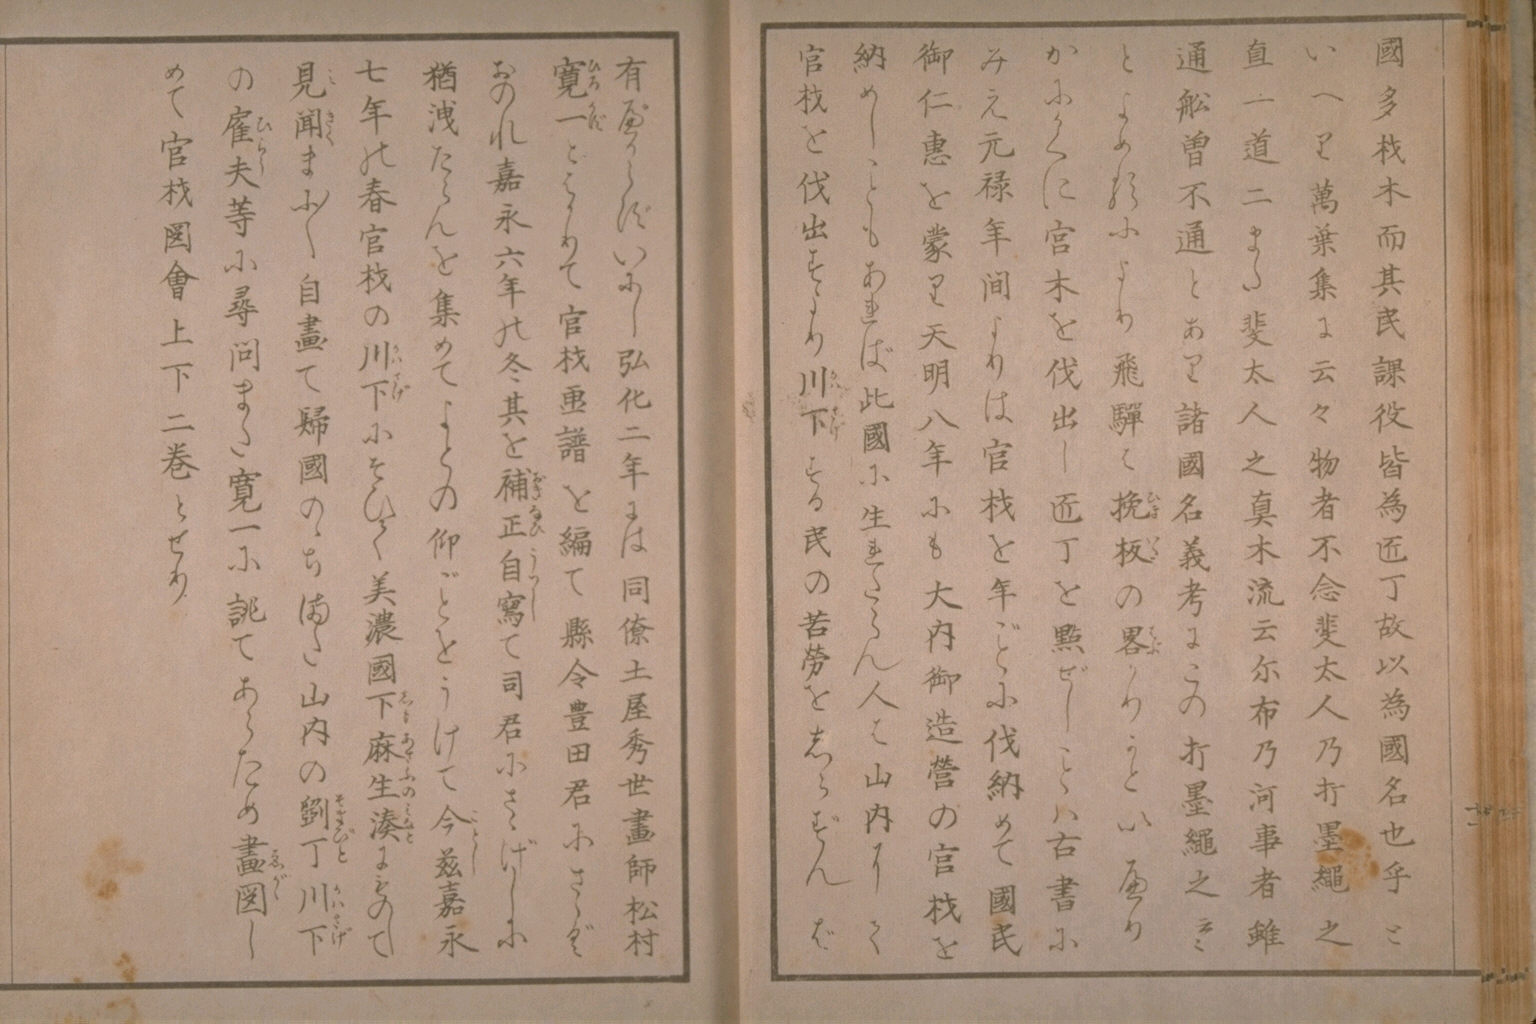 國多材木而其民課役皆為匠丁故以為國名也乎と
いへり萬葉集に云々物者不念斐太人乃打墨縄之
直一道二また斐太人之真木流云尓布乃河事者雖
通船曽不通とあり諸國名義考にこの打墨縄之云々
とよめるによりて飛騨は挽板の畧なりかといへり
かにかくに宮木を伐出し匠丁を點ぜしことハ古書に
みえ元禄年间よりは官材を年ごとに伐納めて國民
御仁惠を蒙り天明八年にも大内御造營の官材を
納めしこともあれば此國に生れたらん人は山内
官材を伐出すより川下する民の苦勞を志らずんば
有べからずいにし弘化二年には同僚土屋秀世畫師松村
寛一とはかりて官材画譜を編て縣令豊田君にさゝぐ
おのれ嘉永六年の冬其を補正自寫て司君にさゝげしに
猶洩たらんを集めてよとの仰ごとをうけて今茲嘉永
七年の春官材の川下にそひて美濃國下麻生湊にものして
見聞まに〱自畫て歸國のゝちまた山内の劉丁川下
の雇夫等に尋问また寛一に誂てあらため畫図し
めて官材図會上下二巻とせり